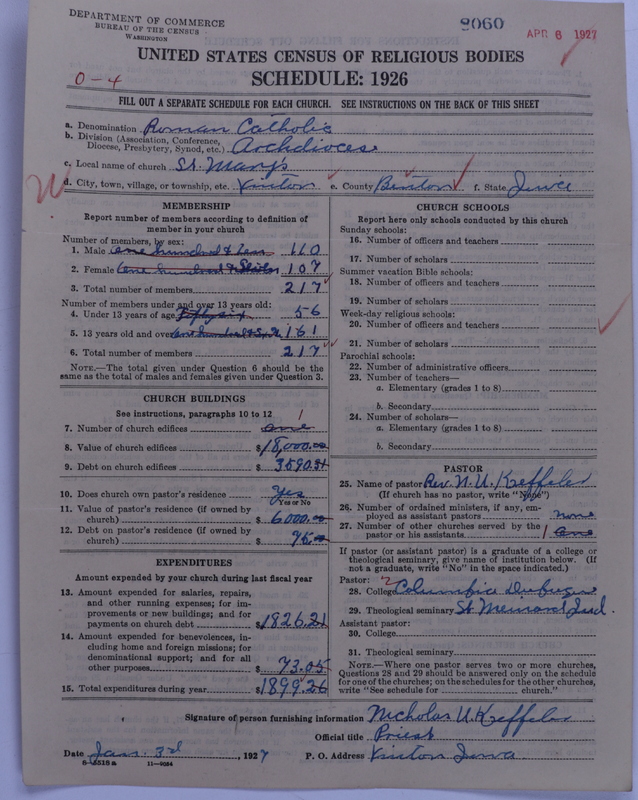 DEPARTMENT OF COMMERCE
BUREAU OF THE CENSUS
WASHINGTON
8060
APR 6 1927
UNITED STATES CENSUS OF RELIGIOUS BODIES
SCHEDULE: 1926
0-4
FILL OUT A SEPARATE SCHEDULE FOR EACH CHURCH. SEE INSTRUCTIONS ON THE BACK OF THIS SHEET
a. Denomination Roman Catholic
b. Division (Association, Conference, Diocese, Presbytery, Synod, etc.) Archdiocese
c. Local name of church St. Mary's
d. City, town, village, or township, etc. Vinton e. County Benton f. State Iowa
MEMBERSHIP
Report number of members according to definition of
member in your church
Number of members, by sex:
1. Male one hundred & ten 110
2. Female one hundred & 107
3. Total number of members 217
Number of members under and over 13 years old:
4. Under 13 years of age Fiftysix 56
5. 13 years old and over one hundred 161
6. Total number of members 217
NOTE.—The total given under Question 6 should be
same as the total of males and females given under Question 3.
CHURCH BUILDINGS
See instructions, paragraphs 10 to 12
7. Number of church edifices one 1
8. Value of church edifices $18,000.00
9. Debt on church edifices $3590.
10. Does church own pastor's residence Yes
Yes or No
11. Value of pastor's residence (if owned by
church) $6000.00
12. Debt on pastor's residence (if owned by
church) $
EXPENDITURES
Amount expended by your church during last fiscal year
13. Amount expended for salaries, repairs,
and other running expenses; for im-
provements or new buildings; and for
payments on church debt $1826.21
14. Amount expended for benevolences, in-
cluding home and foreign missions; for
denominational support; and for all
other purposes $73.05
15. Total expenditures during year $1899.26
CHURCH SCHOOLS
Report here only schools conducted by this church
Sunday schools:
16. Number of officers and teachers
17. Number of scholars
Summer vacation Bible schools:
18. Number of officers and teachers
19. Number of scholars
Week-day religious schools:
20. Number of officers and teachers
21. Number of scholars
Parochial schools:
22. Number of administrative officers
23. Number of teachers—
a. Elementary (grades 1 to 8)
b. Secondary
24. Number of scholars—
a. Elementary (grades 1 to 8)
b. Secondary
PASTOR
25. Name of pastor Rev. N. U. Keffeler
(If church has no pastor, write "None")
26. Number of ordained ministers, if any, em-
ployed as assistant pastors none
27. Number of other churches served by the
pastor or his assistants 1 one
If pastor (or assistant pastor) is a graduate of a college or
theological seminary, give name of institution below. (If
not a graduate, write "No" in the space indicated.)
Pastor:
28. College Columbia Dubuque
29. Theological seminary St.
Assistant pastor:
30. College
31. Theological seminary
NOTE.—Where one pastor serves two or more churches,
Questions 28 and 29 should be answered only on the schedule
for one of the churches; on the schedules for the other churches,
write "See schedule for church."
Signature of person furnishing information Nicholas U. Keffeler
Official title Priest
Date Jan. 3rd, 1927 P. O. Address Vinton Iowa
8-5518 a 11-9064